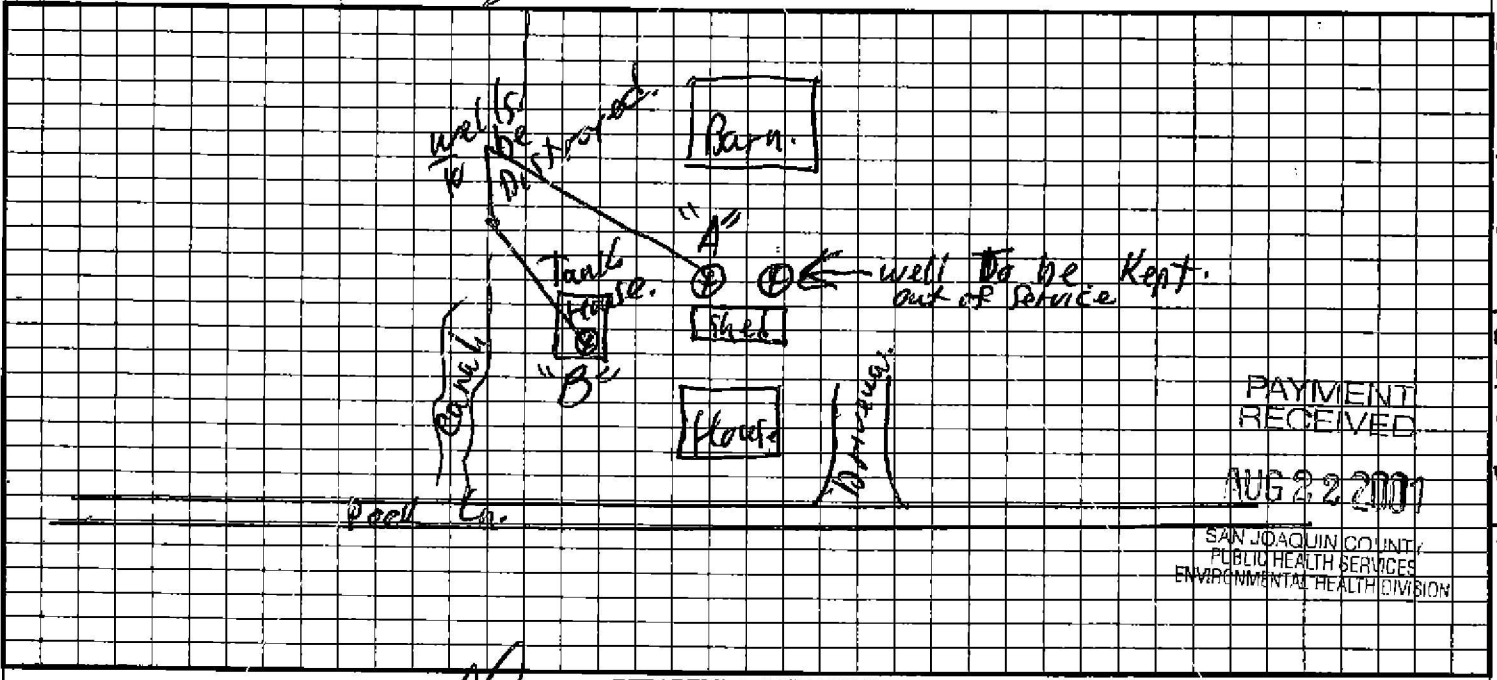 well(s)
To be
Destroyed.
Barn.
"A"
Tank
House.
well To be Kept.
out of Service
Shed
"B"
Canal
House
Driveway.
PAYMENT
RECEIVED
AUG 22 2001
Ln.
SAN JOAQUIN COUNTY
PUBLIC HEALTH SERVICES
ENVIRONMENTAL HEALTH DIVISION